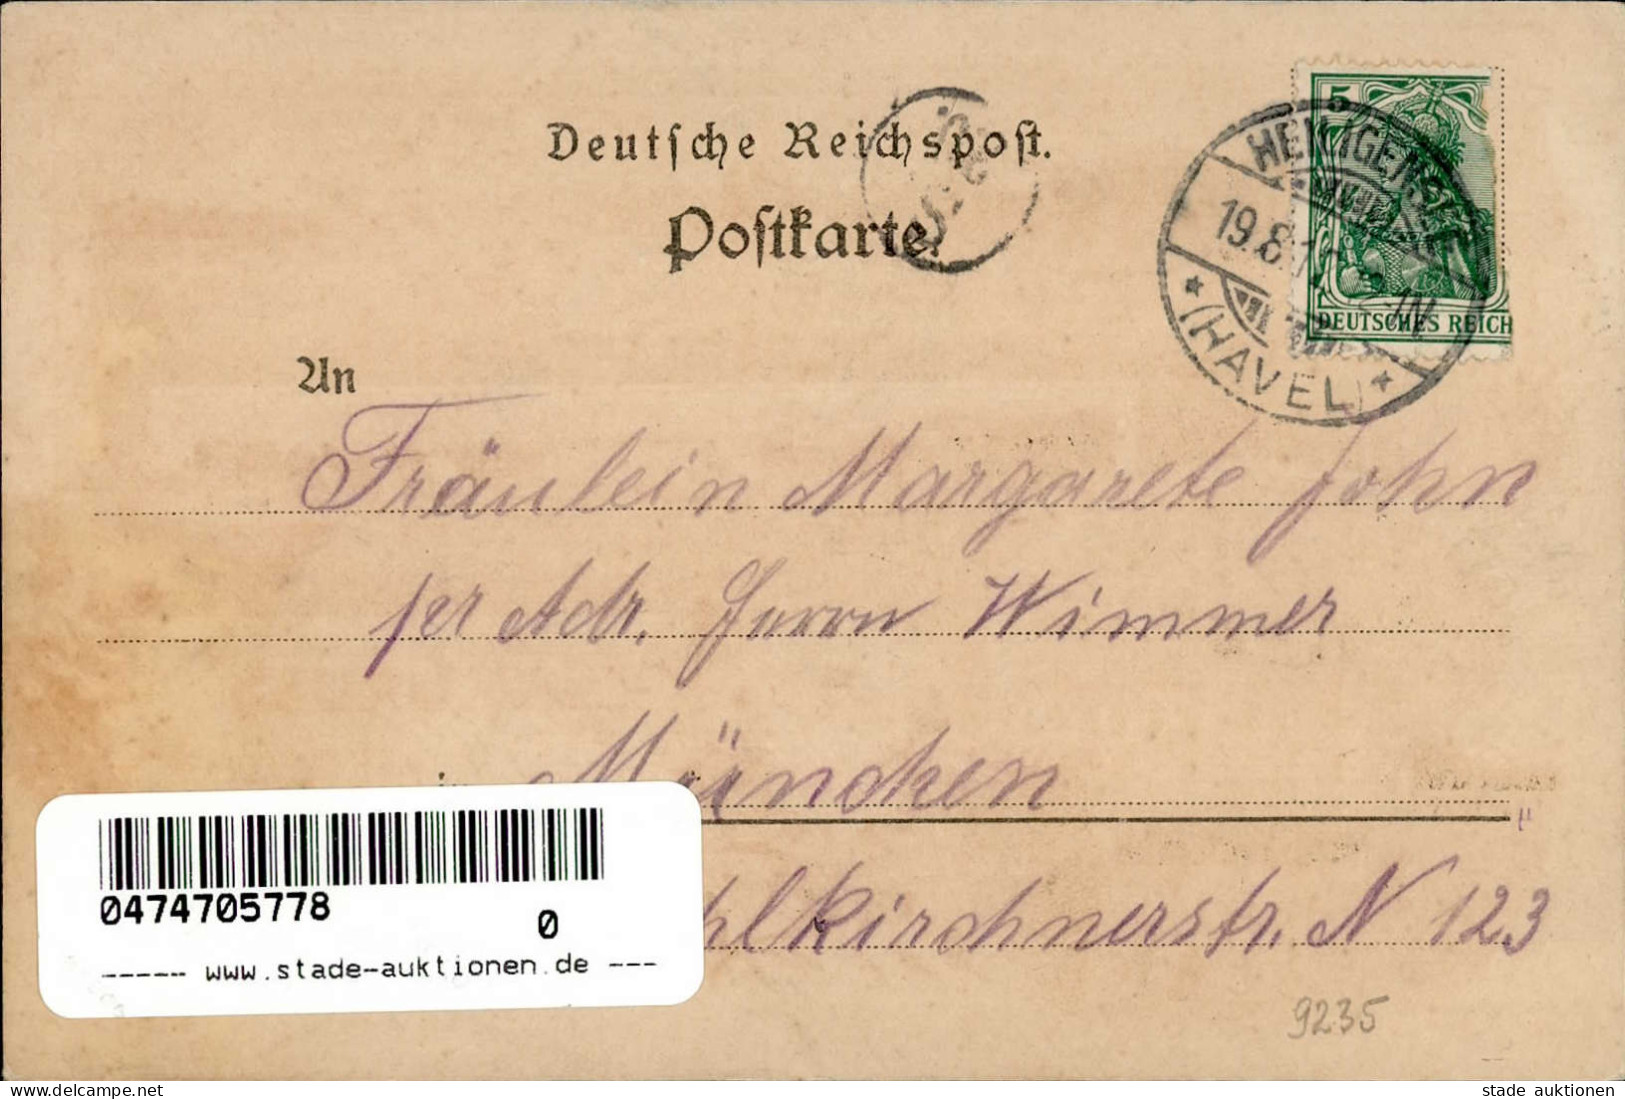 Deutsche Reichspost.
Postkarte.
5
DEUTSCHES REICH
HEILIGENSEE
19.8.
(HAVEL)
An
Fräulein Margarete John
per Adr. Herrn Wimmer
in München
hlkirchnerstr. N 123
0474705778
0
------ www.stade-auktionen.de ---
9235
www.delcampe.net
stade auktionen